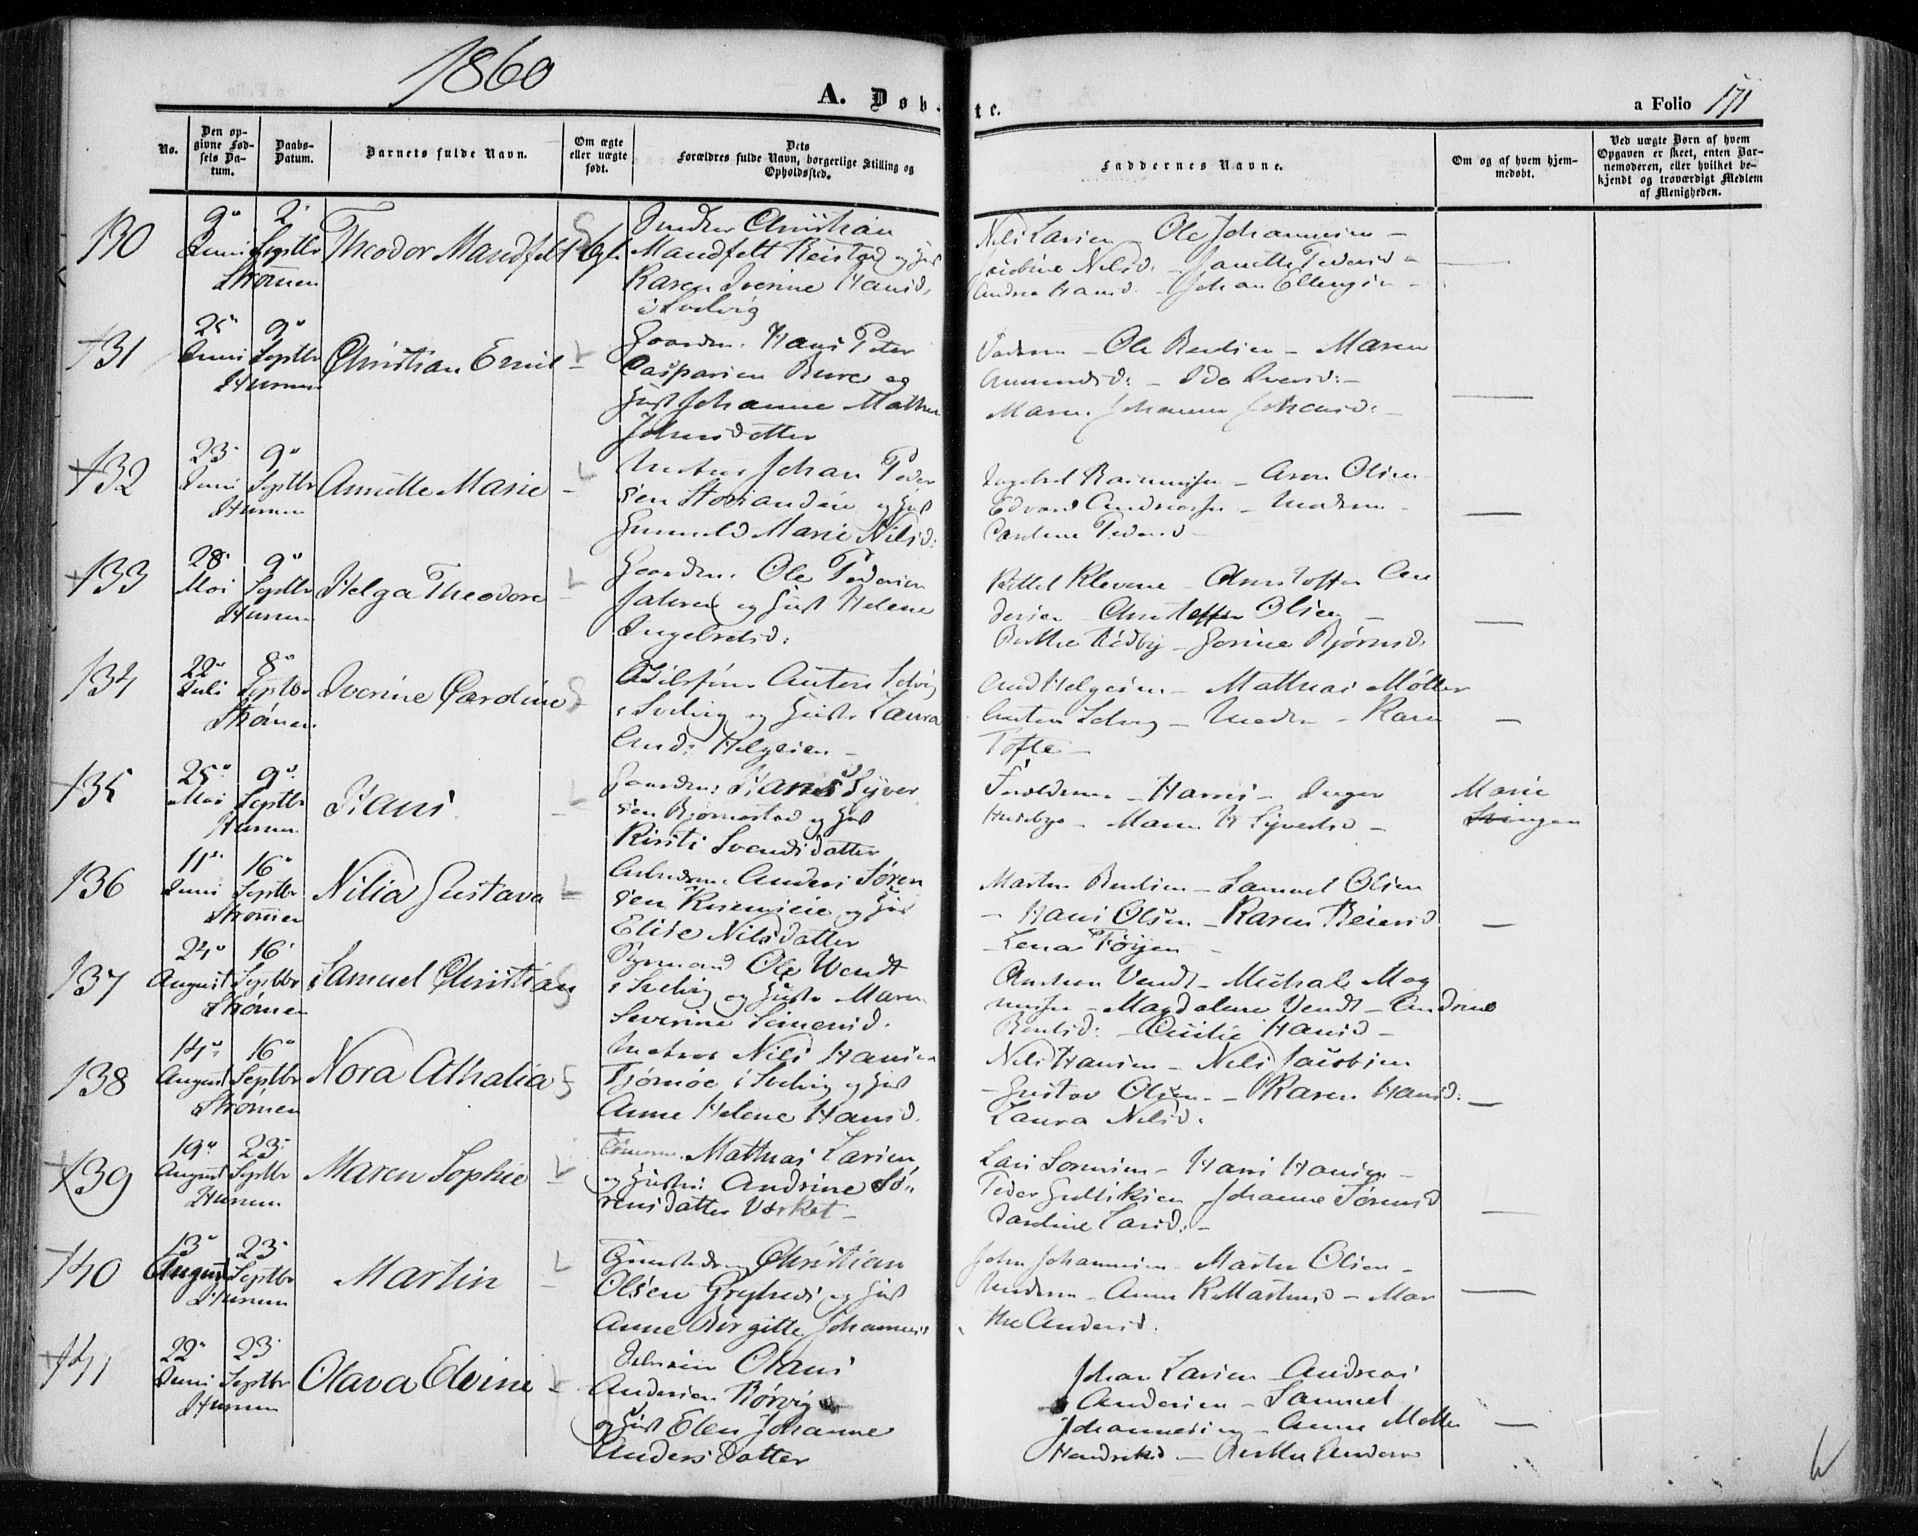 1860
A. Døb.
te.
a Folio 171
No.
Den opgivne Fødsels Datum.
Daabs-Datum.
Barnets fulde Navn.
Om ægte eller uægte født.
Dets Forældres fulde Navn, borgerlige Stilling og Opholdssted.
Faddernes Navne.
Om og af hvem hjemmedøbt.
Ved uægte Børn af hvem Opgaven er skeet, enten Barnemoderen, eller hvilket bekjendt og troværdigt Medlem af Menigheden.
130 9 Juni 2 Septbr Strømm Theodor Mandfelt Christian
Mandfelt Reistad og Hust
Karen Iverine Hansd.
i Svelvig
Nils Larsen - Ole Johannesen -
Jacobine Nilsd. - Janette Pedersd -
Andrea Hansd. - Johan Ellingsen -
131 25 Juni 9 Septbr Hurum Christian Emil - Gaardm. Hans Peter
Caspersen Bure og
Hust Johanne Mathea
Johnsdatter
Faderen - Ole Berdsen - Maren
Ammundsd: - Ida Iversd: -
Maren Johanne Johansd. -
132 23 Juni 9 Septbr Hurum Annette Marie - Matros Johan Peder
sen Storsanden og Hust
Gunnild Marie Nilsd:
Ingebret Rasmussen - Aron Olsen
Edvard Andreassen - Moderen -
Caroline Pedersd -
133 28 Mai 9 Septbr Hurum Helga Theodore - Gaardm. Ole Pedersen
og Hust Helene
Ingebretsd:
Kittel Klevene - Christoffer An
dersen - Christoffer Olsen -
Berthe Rødby - Gorine Bjørnsd.
134 22 Juli 8 Septbr Strømm Iverine Caroline Anton Selvig
i Svelvig og Hust. Laura
And: Helgesen -
And Helgesen - Mathias Møller
Anton Selvig - Moderen - Karen
Tofte -
135 25 Mai 9 Septbr Hurum Hans - Gaardm: Hans Syver
sen Bjørnestad og Hust
Kirsti Svendsdatter
Forældrene - Hans - Inger
Husebye - Maren H Syversd -
Marie
136 11 Juni 16 Septbr Strømm Nilia Gustava - Arbeidsm. Anders Søren
sen og Hust
Elise Nilsdatter
Martin Berdsen - Samuel Olsen
- Hans Olsen - Karen Reiersd
- Lena Tørjen -
137 24 August 16 Septbr Strømm Samuel Christian Styrmand Ole Wendt
i Svelvig og Hust. Maren
Severine Simensd.
Vendt - Michal Mag
nussen - Magdalene Vendt - Andrine
Berntsd: - Cicilie Hansd -
138 14 August 16 Septbr Strømm Nora Athalia Matros Nils Hansen
Tjømøe i Svelvig og Hust
Anne Helene Hansd.
Nils Hansen - Nils Jacobsen
- Gustav Olsen - Karen Hansd:
Laura Nilsd.
139 19 August 23 Septbr Hurum Maren Sophie - Mathias Larsen
og Hustr: Andrine Sø-
rensdatter Værket -
Lars Sørensen - Hans Hansen -
Peder Gulliksen Johanne Sørensd
Caroline Larsd: -
140 13 August 23 Septbr Hurum Martin - Christian
Olsen og Hust
Anne Birgitte Johannesd
John Johannesen Martin Olsen -
Moderen - Anne K Mathisd - Mar
the Andersd.
141 22 Juni 23 Septbr Hurum Olava Elvine - Olaus
Andersen Rørvig
og Hust Elen Johanne
Andersdatter
Johan Larsen Andreas
Andersen - Samuel
Johannesen - Anne Mathea
Hendriksd - Berthe Andersd